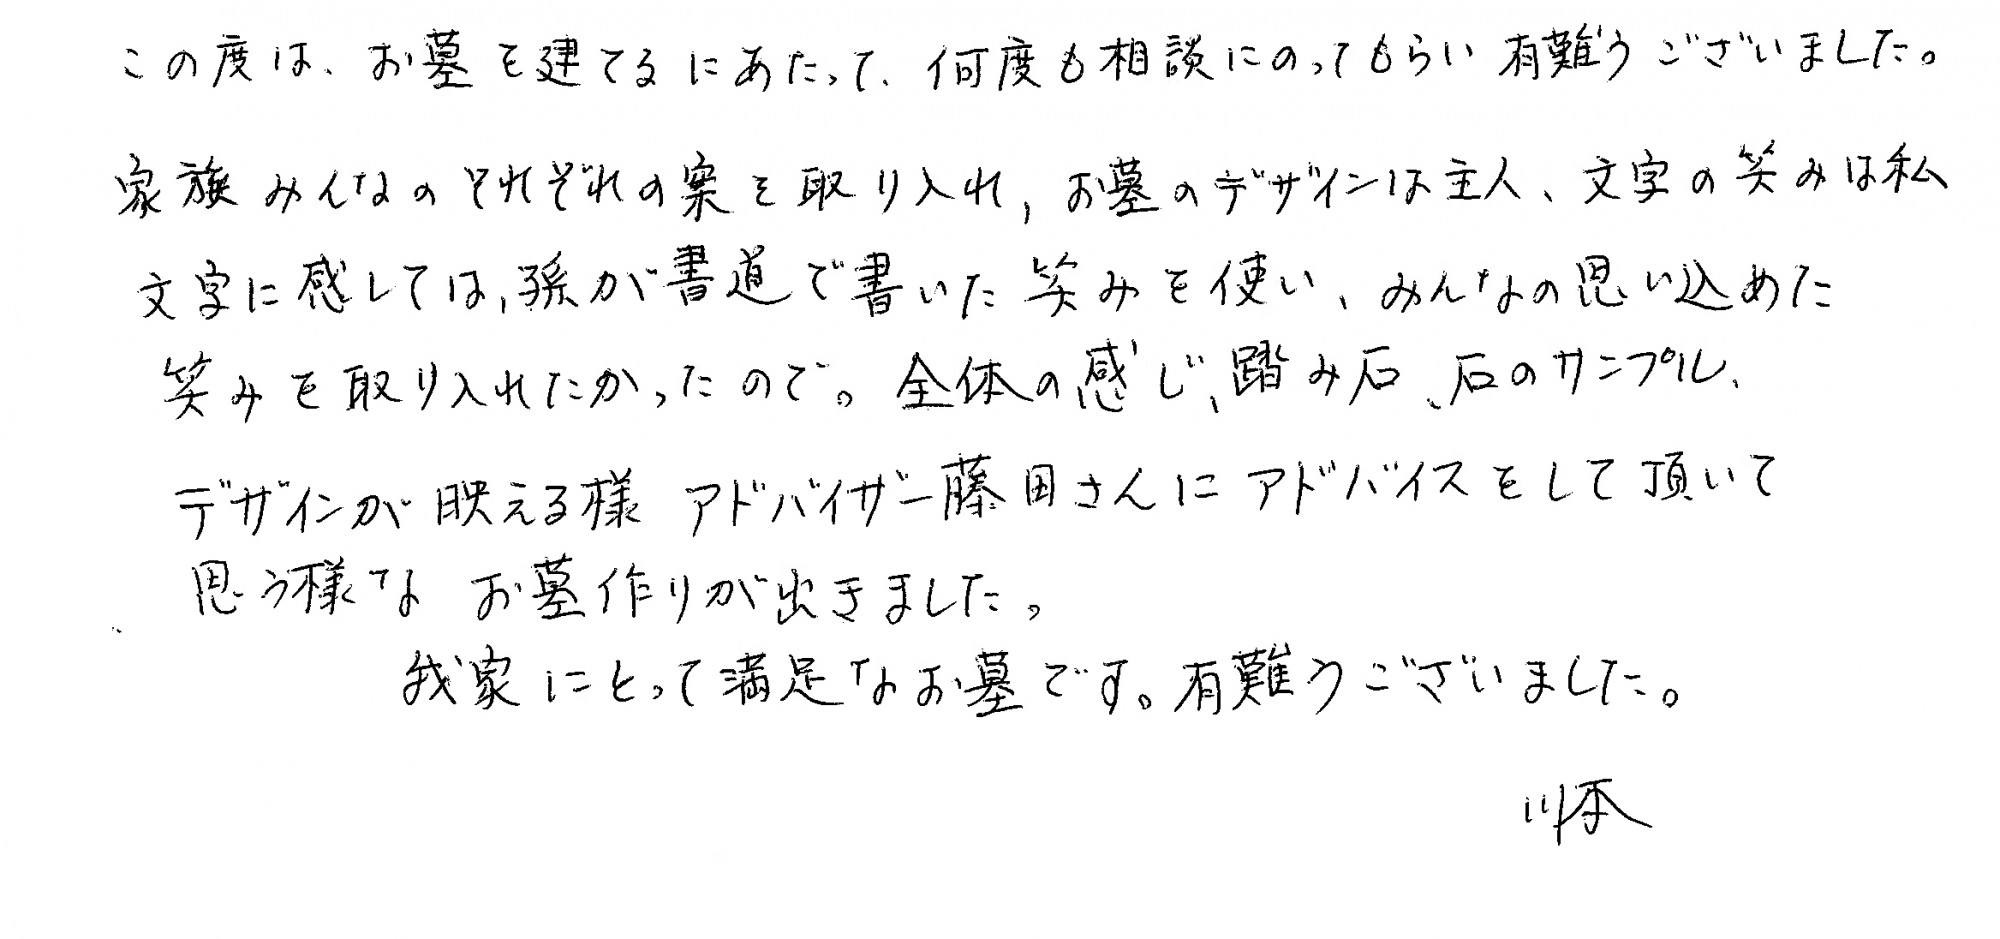 この度は、お墓を建てるにあたって、何度も相談にのってもらい有難うございました。
家族みんなのそれぞれの案を取り入れ,お墓のデザインは主人、文字の笑みは私
文字に感しては,孫が書道で書いた笑みを使い、みんなの思い込めた
笑みを取り入れたかったので。全体の感じ、踏み石、石のサンプル、
デザインが映える様 アドバイザー藤田さんにアドバイスをして頂いて
思う様な お墓作りが出きました。
我家にとって満足なお墓です。有難うございました。
川本